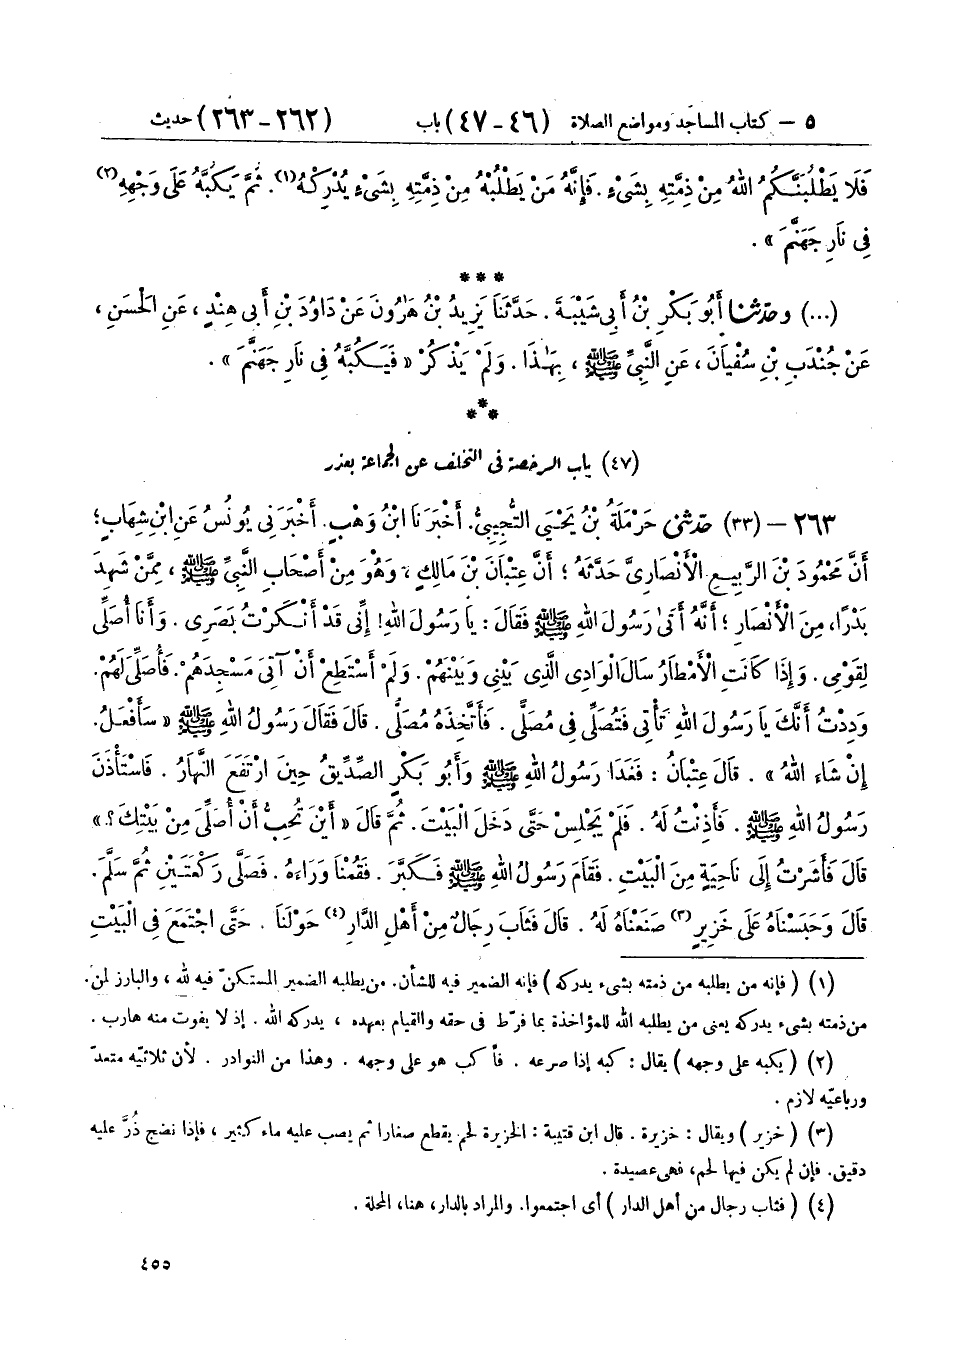 ٥ – كتاب المساجد ومواضع الصلاة (٤٦-٤٧) باب (٢٦٢-٢٦٣) حديث
فَلَا يَطْلُبَنَّكُمُ اللهُ مِنْ ذِمَّتِهِ بِشَىْءٍ . فَإِنَّهُ مَنْ يَطْلُبْهُ مِنْ ذِمَّتِهِ بِشَىْءٍ يُدْرِكْهُ(١). ثُمَّ يَكُبَّهُ عَلَى وَجْهِهِ(٢)
فِى نَارِ جَهَنَّمَ » .
***
(...) وحَدَّثَنَا أَبُو بَكْرِ بْنُ أَبِى شَيْبَةَ . حَدَّثَنَا يَزِيدُ بْنُ هَارُونَ عَنْ دَاوُدَ بْنِ أَبِى هِنْدٍ ، عَنِ الْحَسَنِ ،
عَنْ جُنْدَبِ بْنِ سُفْيَانَ ، عَنِ النَّبِىِّ ﷺ ، بِهَذَا . وَلَمْ يَذْكُرْ « فَيَكُبَّهُ فِى نَارِ جَهَنَّمَ » .
***
(٤٧) باب الرخصة فى التخلف عن الجماعة بعذر
٢٦٣ – (٣٣) حَدَّثَنِى حَرْمَلَةُ بْنُ يَحْيَى التُّجِيبِىُّ. أَخْبَرَنَا ابْنُ وَهْبٍ. أَخْبَرَنِى يُونُسُ عَنِ ابْنِ شِهَابٍ؛
أَنَّ مَحْمُودَ بْنَ الرَّبِيعِ الْأَنْصَارِىَّ حَدَّثَهُ ؛ أَنَّ عِتْبَانَ بْنَ مَالِكٍ ، وَهُوَ مِنْ أَصْحَابِ النَّبِىِّ ﷺ ، مِمَّنْ شَهِدَ
بَدْرًا، مِنَ الْأَنْصَارِ ؛ أَنَّهُ أَتَى رَسُولَ اللهِ ﷺ فَقَالَ : يَا رَسُولَ اللهِ! إِنِّى قَدْ أَنْكَرْتُ بَصَرِى . وَأَنَا أُصَلِّى
لِقَوْمِى . وَإِذَا كَانَتِ الْأَمْطَارُ سَالَ الْوَادِى الَّذِى بَيْنِى وَبَيْنَهُمْ . وَلَمْ أَسْتَطِعْ أَنْ آتِىَ مَسْجِدَهُمْ . فَأُصَلِّىَ لَهُمْ .
وَدِدْتُ أَنَّكَ يَا رَسُولَ اللهِ تَأْتِى فَتُصَلِّى فِى مُصَلًّى . فَأَتَّخِذَهُ مُصَلًّى . قَالَ فَقَالَ رَسُولُ اللهِ ﷺ « سَأَفْعَلُ.
إِنْ شَاءَ اللهُ » . قَالَ عِتْبَانُ : فَغَدَا رَسُولُ اللهِ ﷺ وَأَبُو بَكْرٍ الصِّدِّيقُ حِينَ ارْتَفَعَ النَّهَارُ . فَاسْتَأْذَنَ
رَسُولُ اللهِ ﷺ . فَأَذِنْتُ لَهُ . فَلَمْ يَجْلِسْ حَتَّى دَخَلَ الْبَيْتَ . ثُمَّ قَالَ « أَيْنَ تُحِبُّ أَنْ أُصَلِّىَ مِنْ بَيْتِكَ ؟ »
قَالَ فَأَشَرْتُ إِلَى نَاحِيَةٍ مِنَ الْبَيْتِ . فَقَامَ رَسُولُ اللهِ ﷺ فَكَبَّرَ . فَقُمْنَا وَرَاءَهُ . فَصَلَّى رَكْعَتَيْنِ ثُمَّ سَلَّمَ .
قَالَ وَحَبَسْنَاهُ عَلَى خَزِيرٍ(٣) صَنَعْنَاهُ لَهُ . قَالَ فَثَابَ رِجَالٌ مِنْ أَهْلِ الدَّارِ(٤) حَوْلَنَا . حَتَّى اجْتَمَعَ فِى الْبَيْتِ
(١) ( فإنه من يطلبه من ذمته بشىء يدركه ) فإنه الضمير فيه للشأن. من يطلبه الضمير المستكنّ فيه لله ، والبارز لمن.
من ذمته بشىء يدركه يعنى من يطلبه الله للمؤاخذة بما فرّط فى حقه والقيام بعهده ، يدركه الله . إذ لا يفوت منه هارب .
(٢) ( يكبه على وجهه ) يقال : كبه إذا صرعه . فأكب هو على وجهه . وهذا من النوادر . لأن ثلاثيّه متعدّ
ورباعيّه لازم .
(٣) ( خزير ) ويقال : خزيرة . قال ابن قتيبة : الخزيرة لحم يقطع صغارا ثم يصب عليه ماء كثير ، فإذا نضج ذُرَّ عليه
دقيق. فإن لم يكن فيها لحم، فهى عصيدة .
(٤) ( فثاب رجال من أهل الدار ) أى اجتمعوا. والمراد بالدار، هنا، المحلة .
٤٥٥